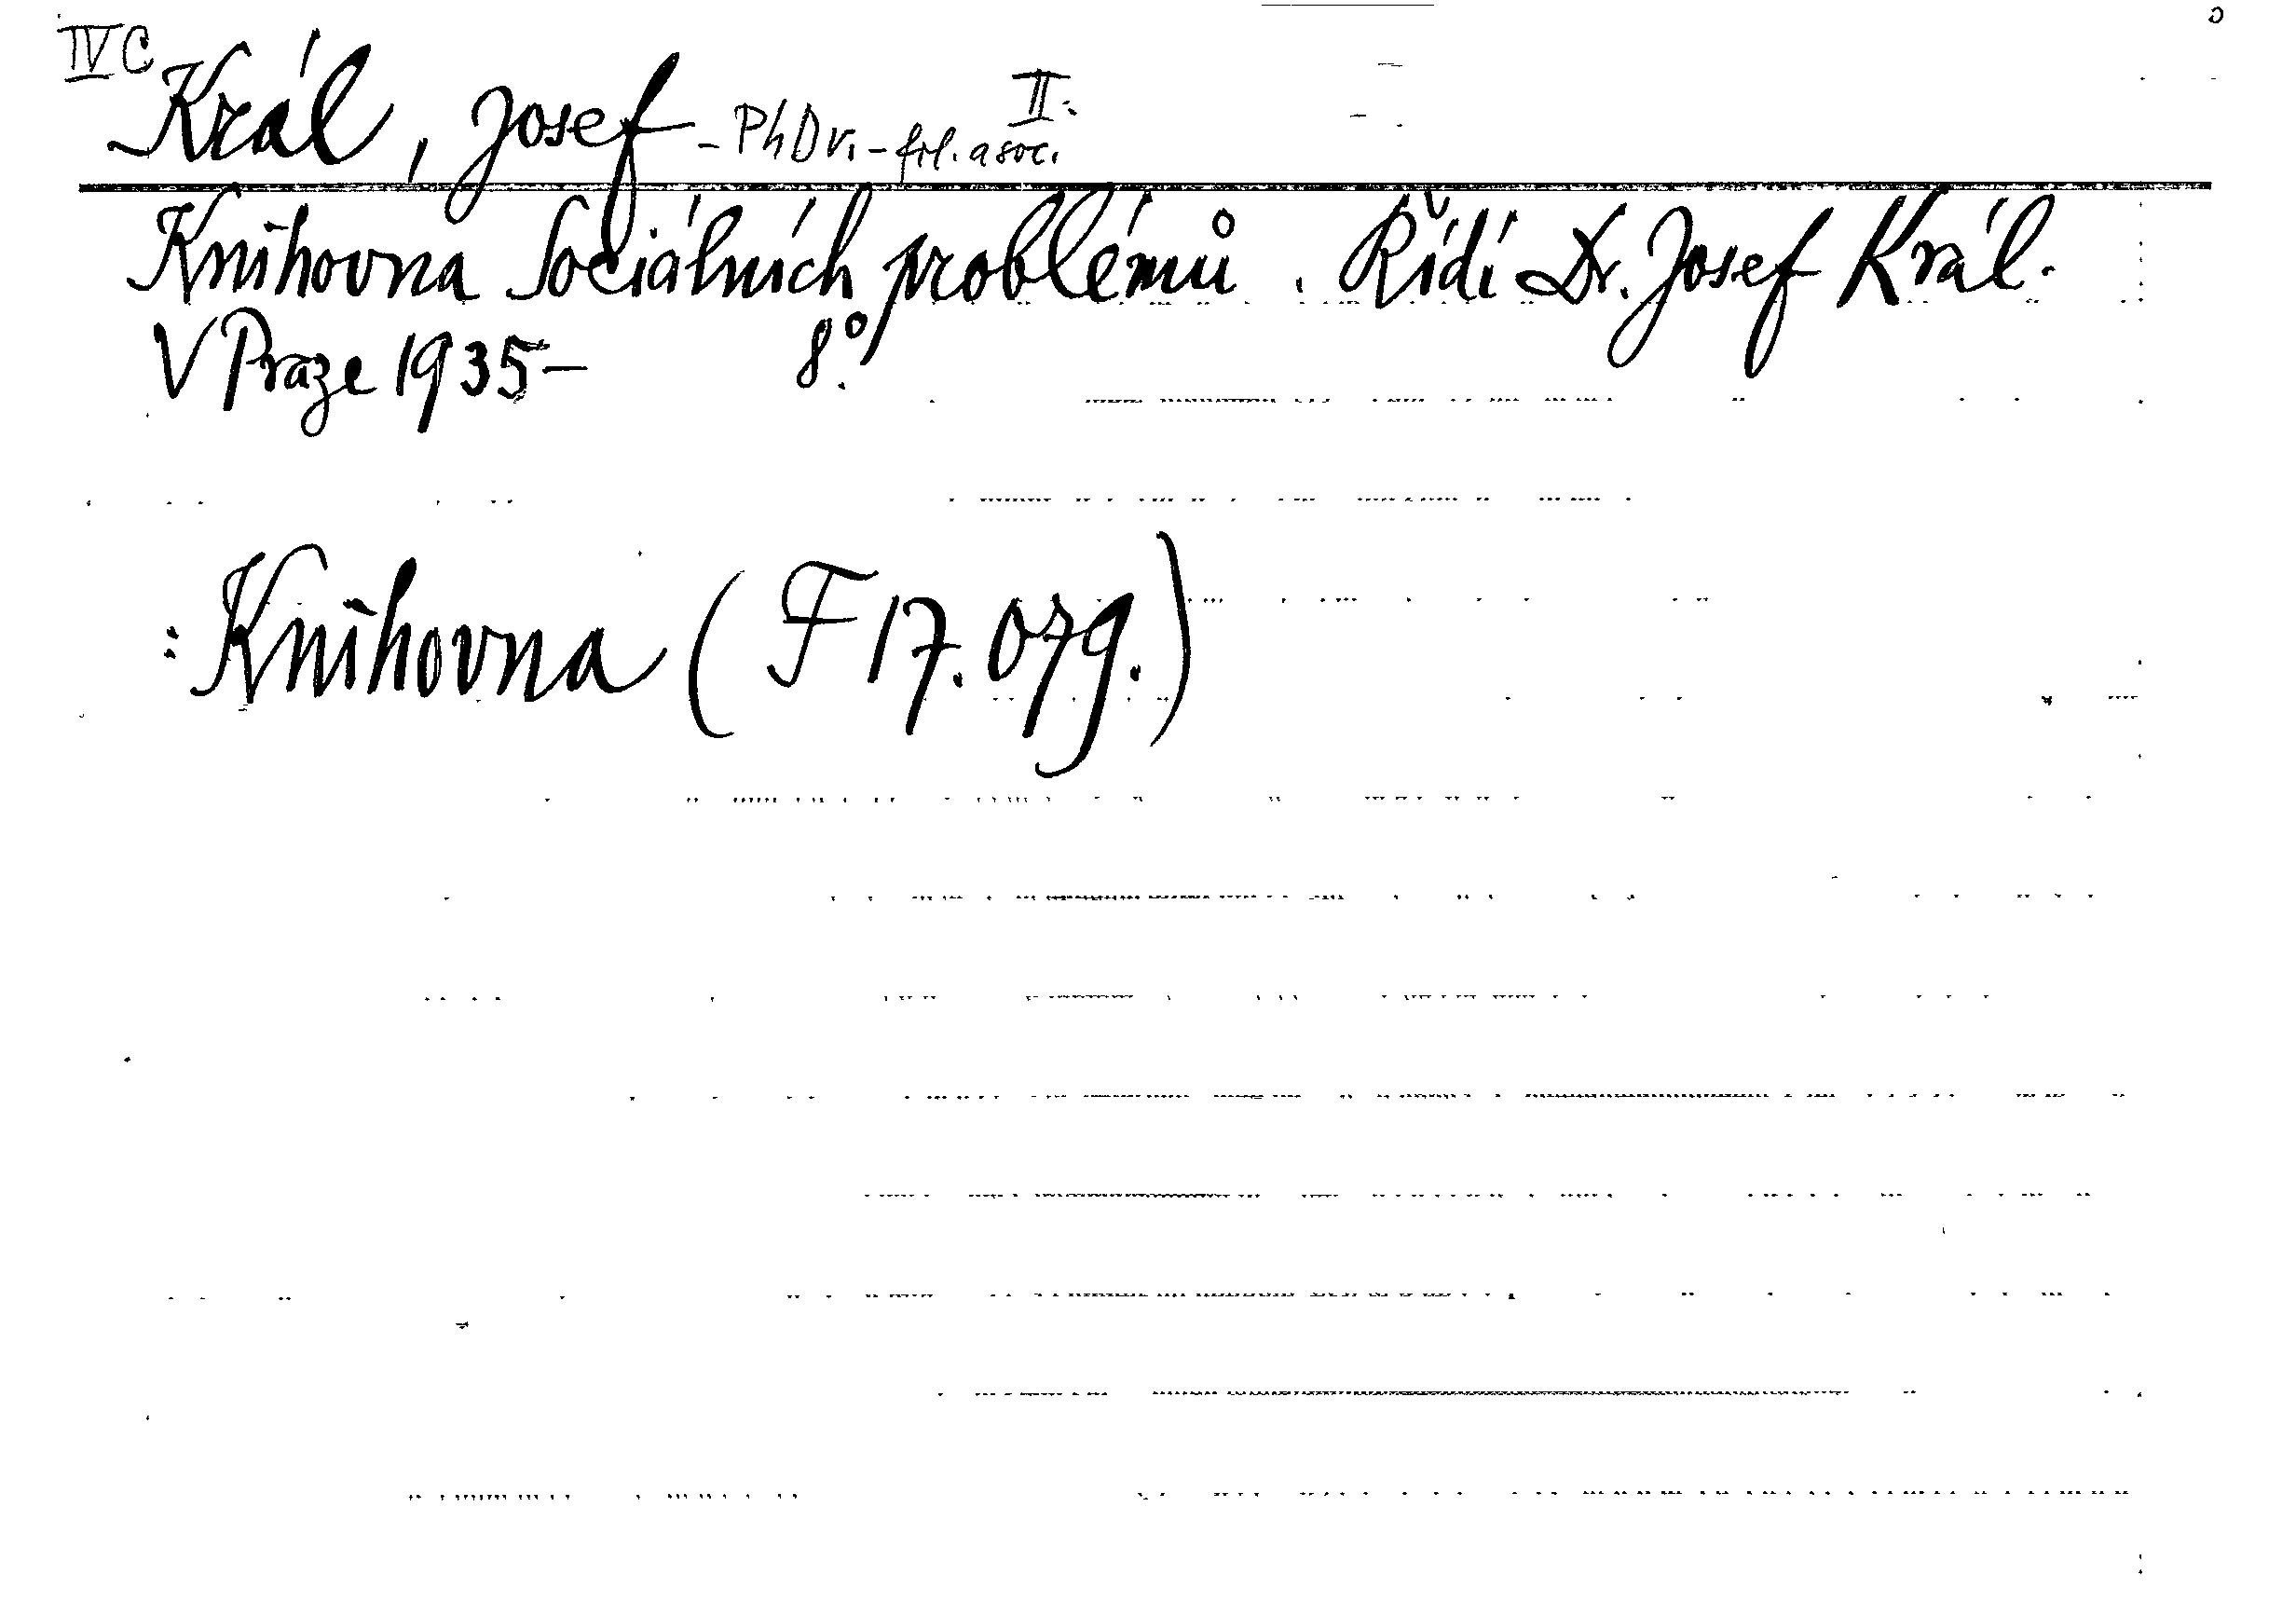 IV C
Král, Josef - PhDr. - fil. a soc. II.
Knihovna Sociálních problémů. Řídí Dr. Josef Král.
V Praze 1935- 8°.
: Knihovna (F 17.079.)